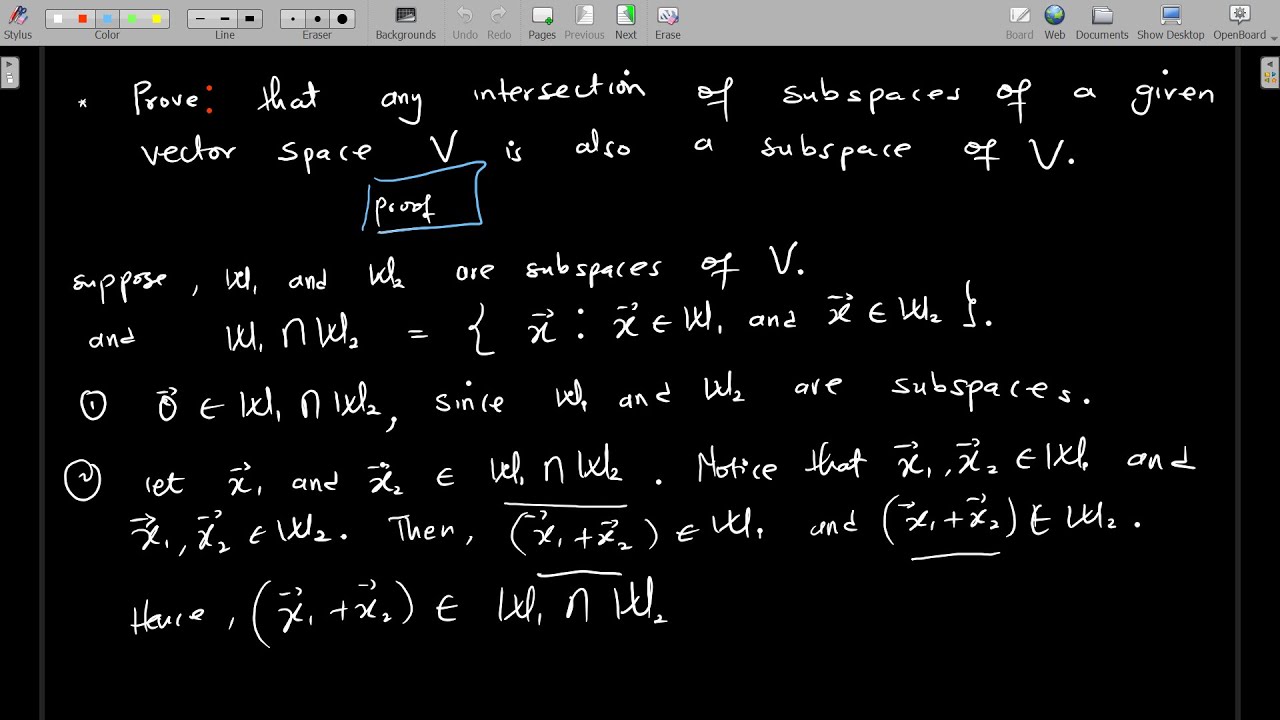 Stylus Color Line Eraser Backgrounds Undo Redo Pages Previous Next Erase Board Web Documents Show Desktop OpenBoard
* Prove: that any intersection of subspaces of a given
vector space V is also a subspace of V.
Proof
suppose, W₁ and W₂ are subspaces of V.
and W₁ ∩ W₂ = { x⃗ : x⃗ ∈ W₁ and x⃗ ∈ W₂ }.
① 0⃗ ∈ W₁ ∩ W₂, since W₁ and W₂ are subspaces.
② let x⃗₁ and x⃗₂ ∈ W₁ ∩ W₂. Notice that x⃗₁, x⃗₂ ∈ W₁ and
x⃗₁, x⃗₂ ∈ W₂. Then, (x⃗₁ + x⃗₂) ∈ W₁ and (x⃗₁ + x⃗₂) ∈ W₂.
Hence, (x⃗₁ + x⃗₂) ∈ W₁ ∩ W₂